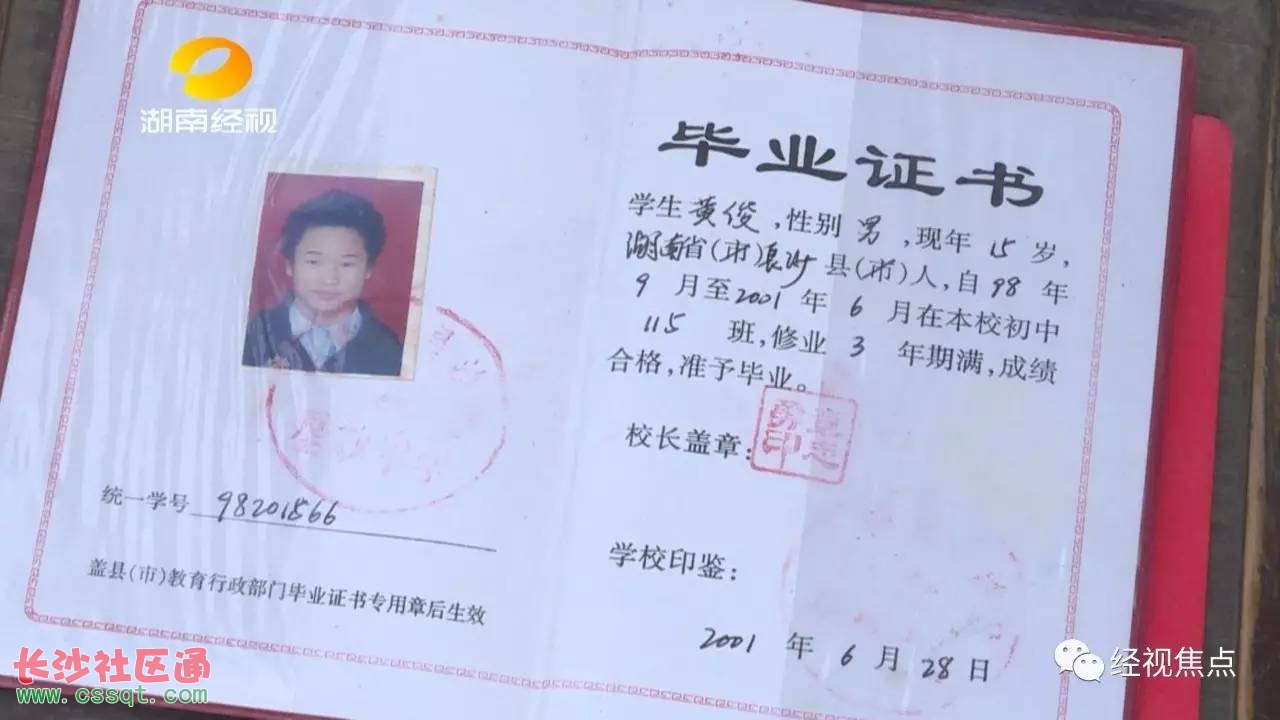 湖南经视
毕业证书
学生黄俊,性别男,现年15岁,
湖南省(市)长沙县(市)人,自98年
9月至2001年6月在本校初中
115班,修业3年期满,成绩
合格,准予毕业。
校长盖章:
学校印鉴:
2001年6月28日
统一学号 98201566
盖县(市)教育行政部门毕业证书专用章后生效
长沙社区通
www.cssqt.com
经视焦点